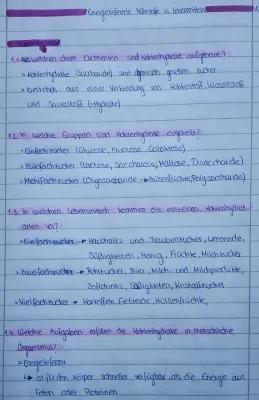 Energieliefernde Nährstoffe in Lebensmitteln
1. Kohlenhydrate
1.1 Aus welchen chem. Elementen sind Kohlenhydrate aufgebaut?
> Kohlenhydrate (Saccharide) sind chemisch gesehen Zucker
> bestehen aus einer Verbindung von Kohlenstoff, Wasserstoff
und Sauerstoff (=Hydrate)
1.2 In welche Gruppen sind Kohlenhydrate eingeteilt?
> Einfachzucker (Glucose, Fructose, Galaktose)
> Zweifachzucker (Lactose, Saccharose, Maltose, Disaccharide)
> Mehrfachzucker (Oligosaccharide → Hülsenfrüchte, Polysaccharide)
1.3 In welchen Lebensmitteln kommen die einzelnen Kohlenhydrat-
arten vor?
> Einfachzucker → Haushalts- und Traubenzucker, Limonade,
Süßigkeiten, Honig, Früchte, Milchzucker
> Zweifachzucker → Rohrzucker, Bier, Milch- und Milchprodukte,
Softdrinks, Süßigkeiten, Kristallzucker
> Vielfachzucker → Kartoffeln, Getreide, Hülsenfrüchte,
1.4 Welche Aufgaben erfüllen die Kohlenhydrate im menschliche
Organismus?
> Energielieferant
↳ ist für den Körper schneller verfügbar als die Energie aus
Fetten oder Proteinen